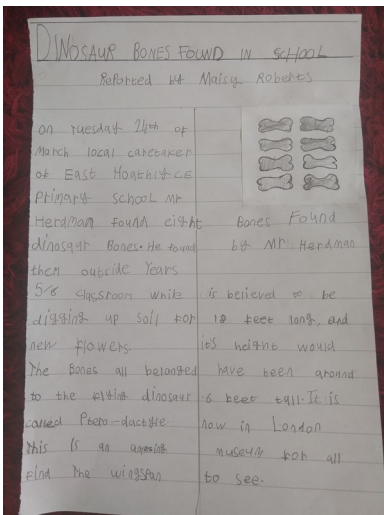 DINOSAUR BONES FOUND IN SCHOOL
Reported by Maisy Roberts
on Tuesday 24th of
March local caretaker
of East Hoathly CE
Primary School Mr
Herdman found eight
dinosaur Bones. He found
them outside Years
5/6 classroom while
digging up soil for
new flowers.
The Bones all belonged
to the flying dinosaur
called Ptero-dactyle
This is an amazing
find The wingspan
Bones Found
by Mr Herdman
is believed to be
18 feet long, and
it's height would
have been around
6 feet tall. It is
now in London
museum for all
to see.